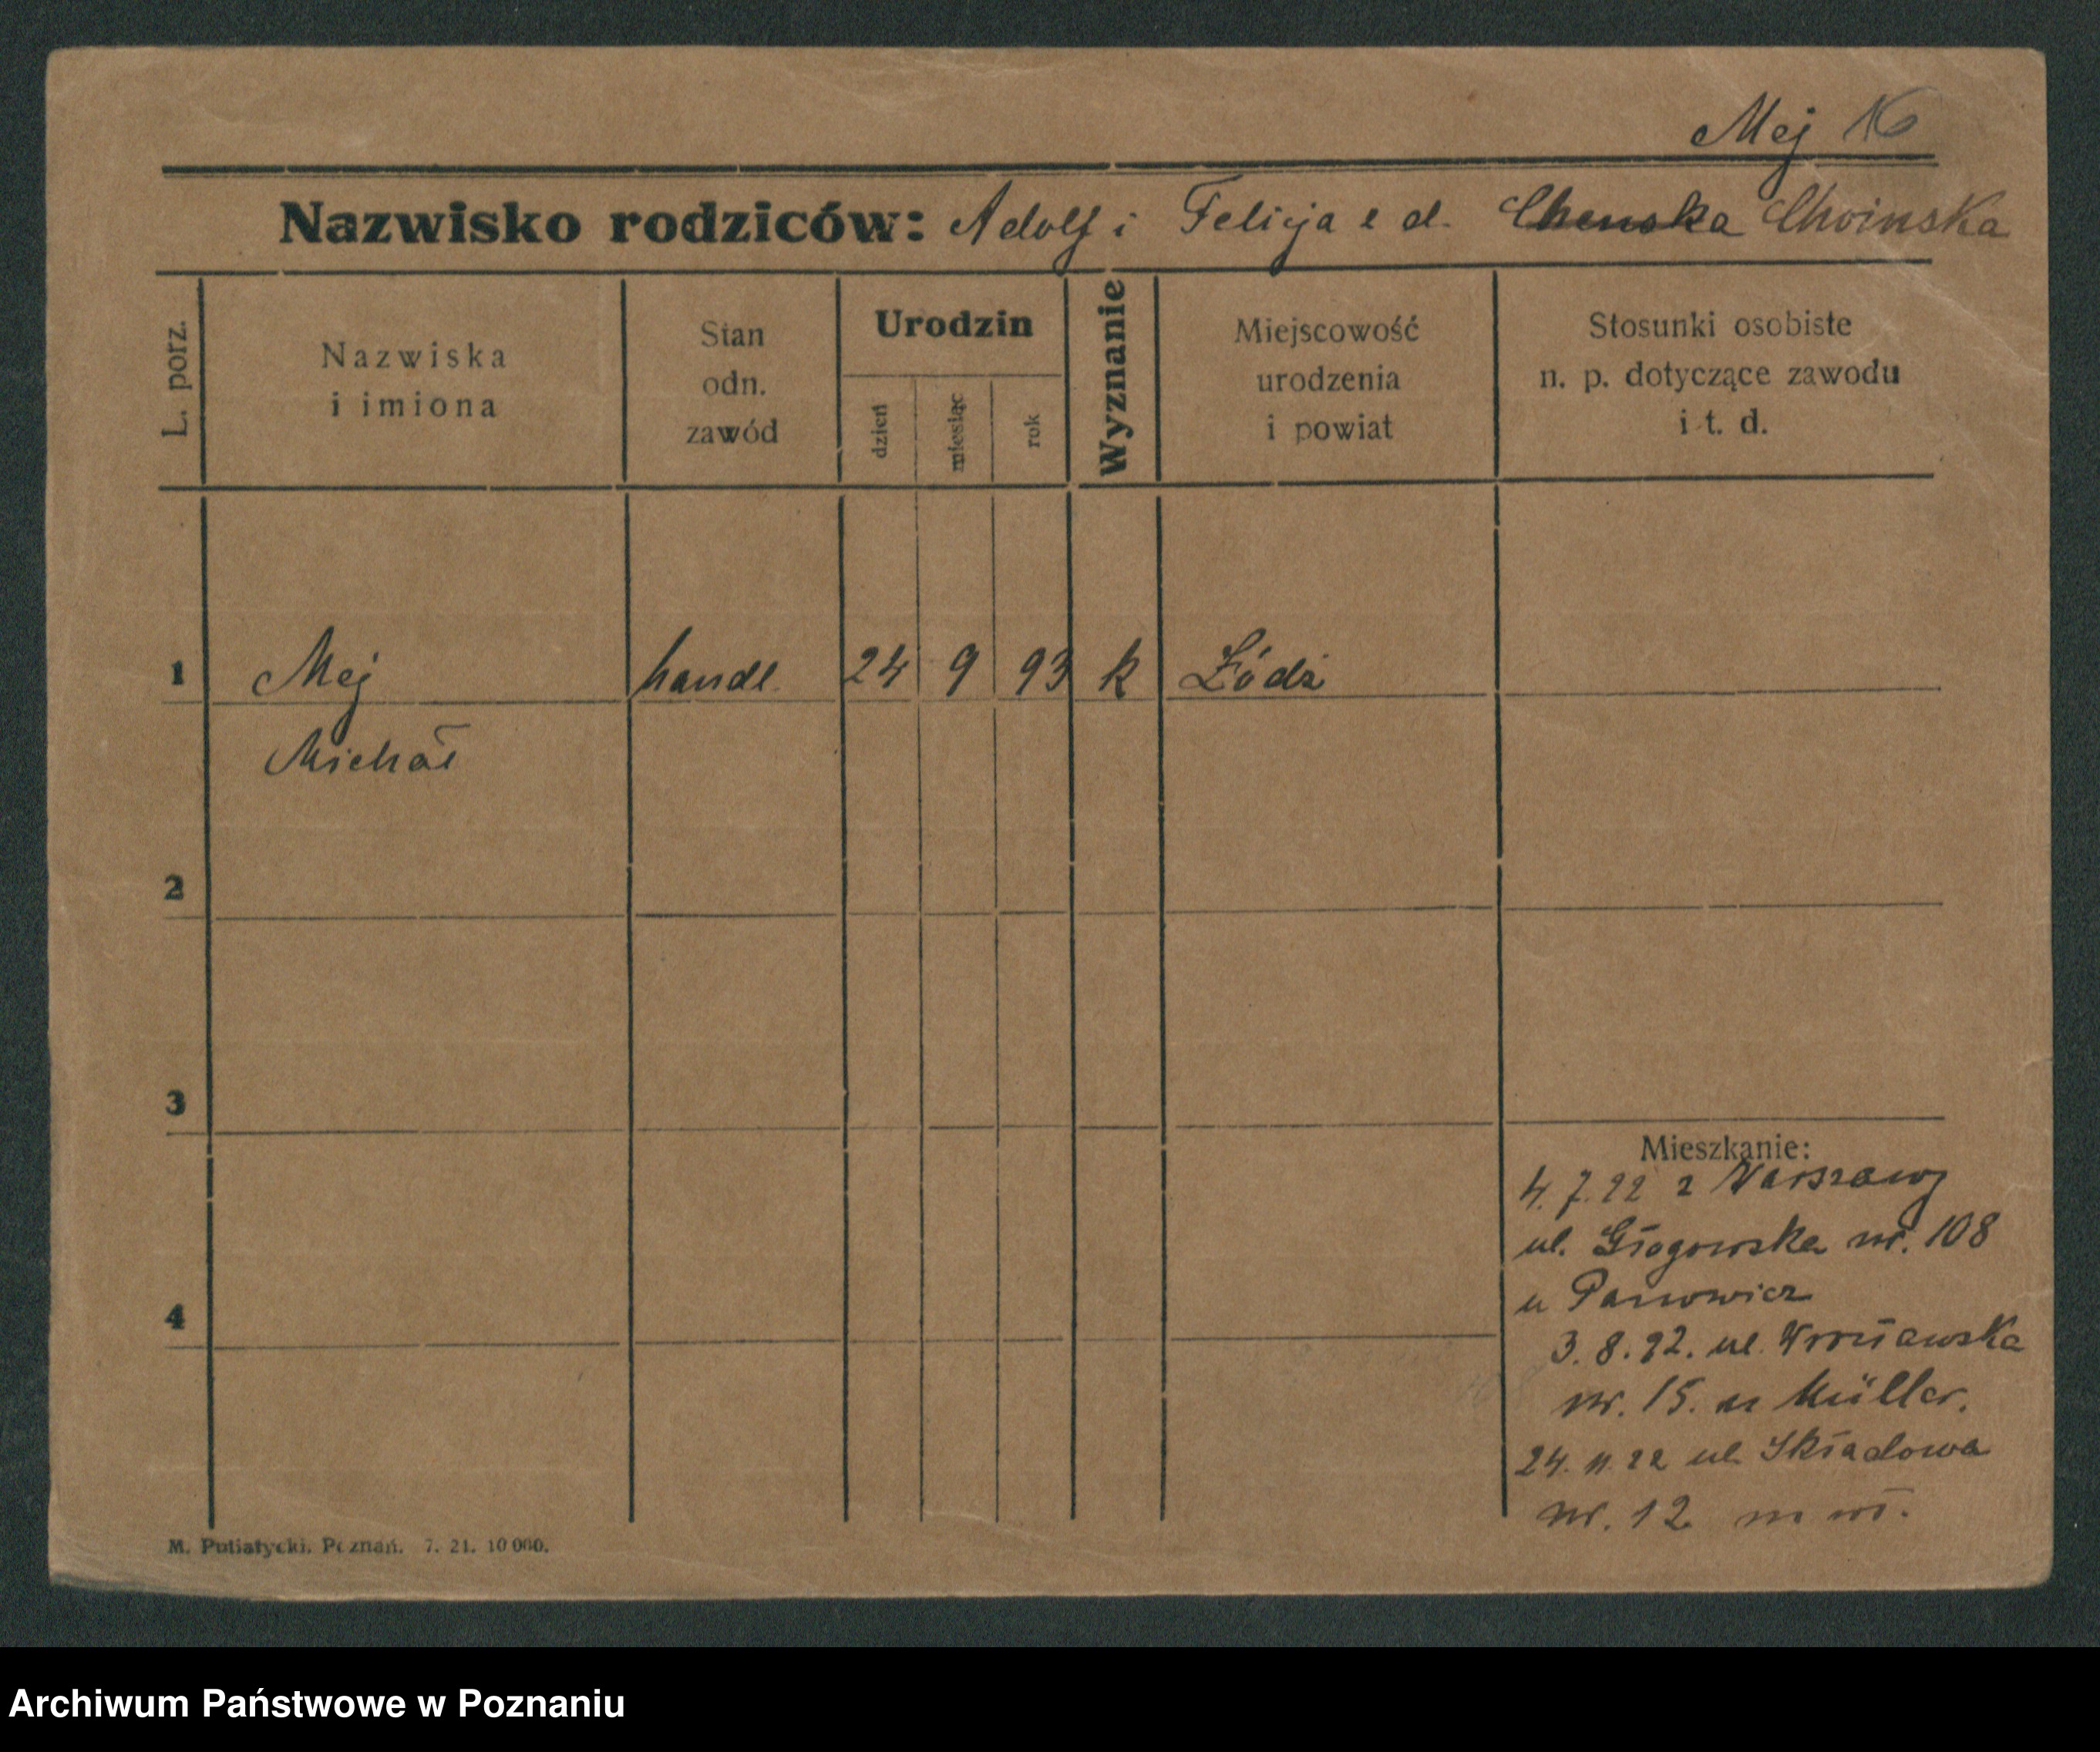 Mej 16
Nazwisko rodziców: Adolf i Felicja e d. Chenska Choinska
L. porz.
Nazwiska
i imiona
Stan
odn.
zawód
Urodzin
dzień
miesiąc
rok
Wyznanie
Miejscowość
urodzenia
i powiat
Stosunki osobiste
n. p. dotyczące zawodu
i t. d.
1 Mej handl. 24 9 93 k Łódź
Michał
2
3
4
Mieszkanie:
4. 7. 22 z Warszawy
ul. Głogowska nr. 108
u Panowicz
3. 8. 22. ul. Wrocławska
nr. 15. u Müller.
24. 11. 22 ul Składowa
nr. 12
M. Putiatycki. Poznań. 7. 21. 10 000.
Archiwum Państwowe w Poznaniu